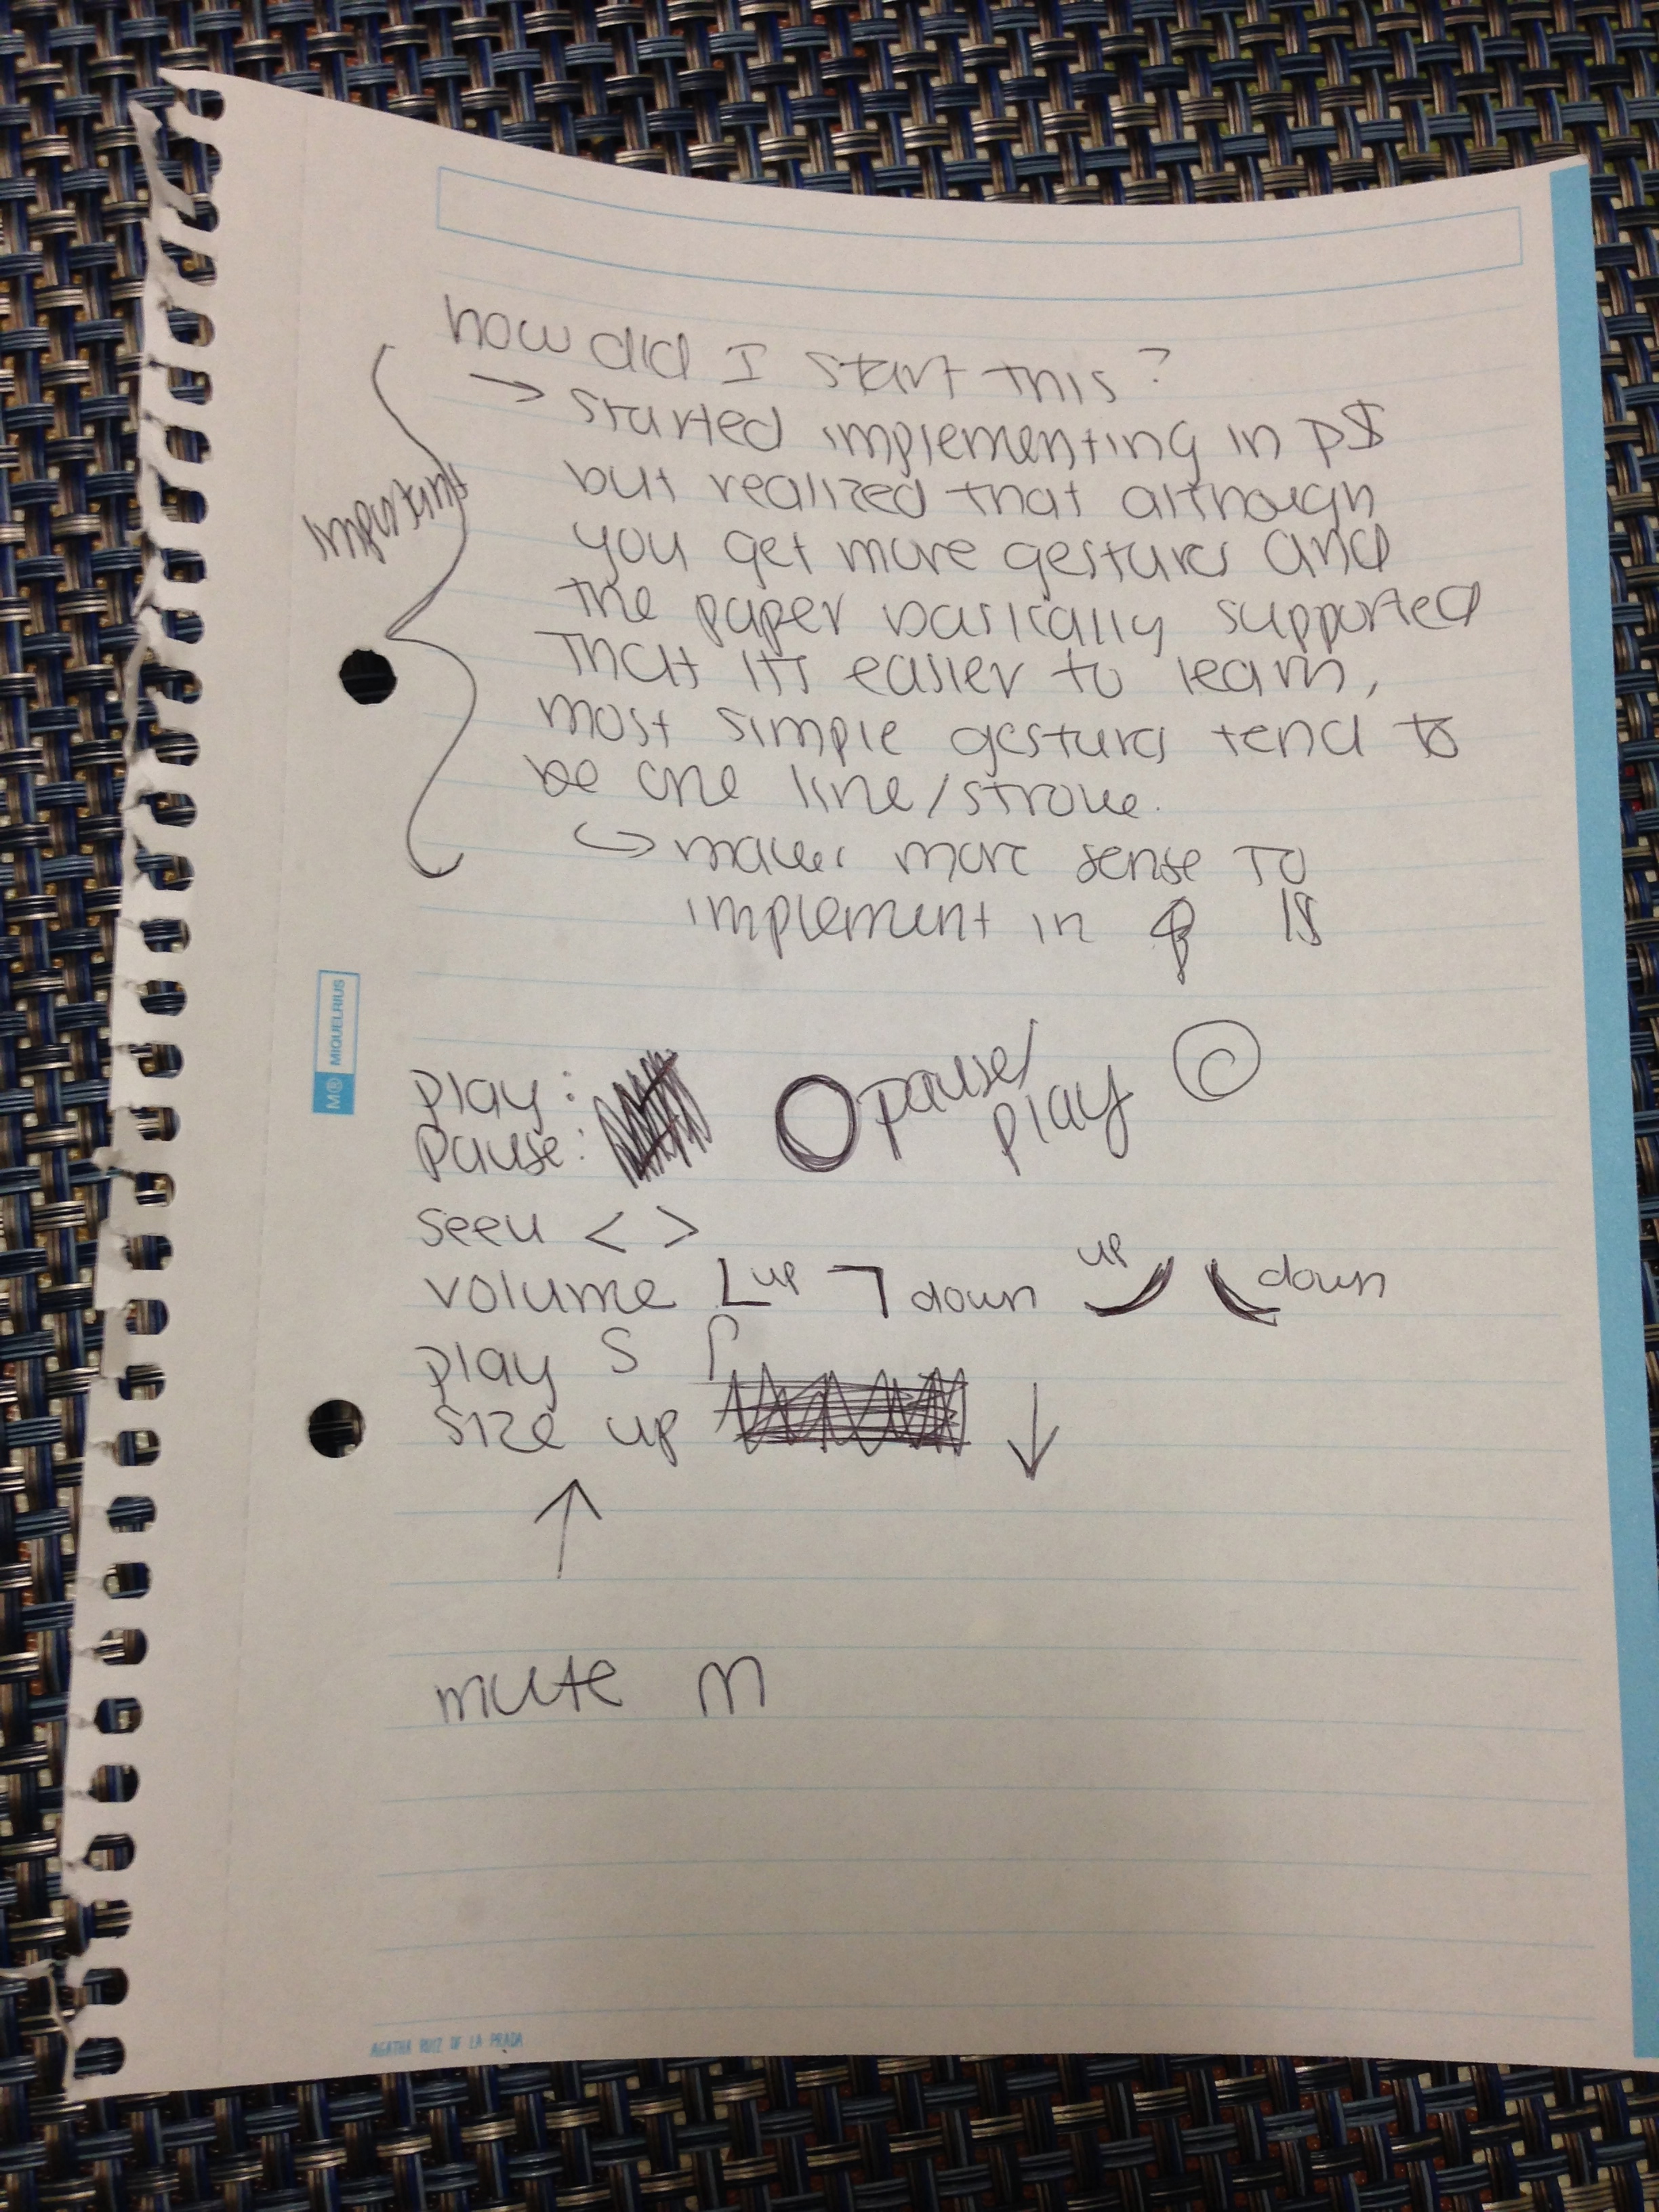 how did I start this?
→ started implementing in P$
but realized that although
you get more gestures and
the paper basically supported
that it's easier to learn,
most simple gestures tend to
be one line/stroke.
↪ makes more sense to
implement in 1$
Important
M® MIQUELRIUS
play:
Pause:
pause/
play
seek < >
volume up down up down
play S
size up ↓
↑
mute m
AGATHA RUIZ DE LA PRADA